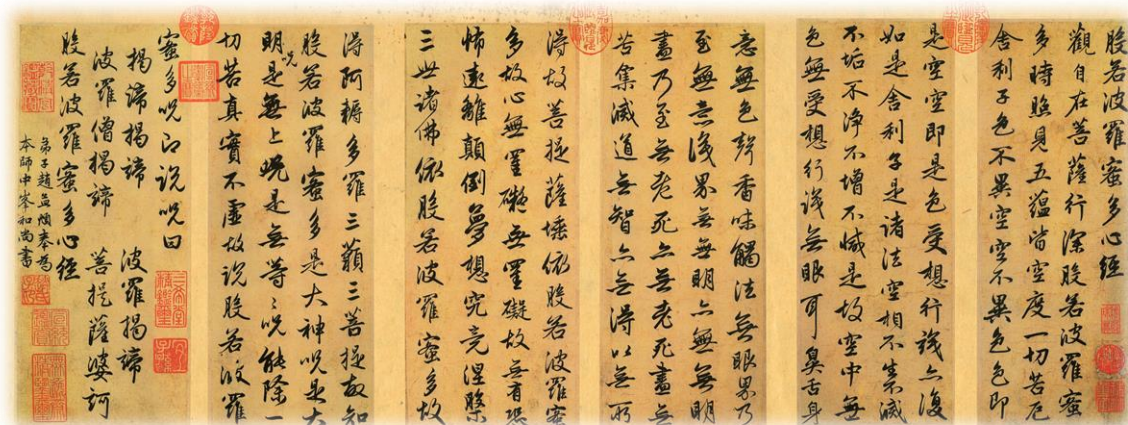 般若波羅蜜多心經
觀自在菩薩行深般若波羅蜜
多時照見五蘊皆空度一切苦厄
舍利子色不異空空不異色色即
是空即是色受想行識亦復
如是舍利子是諸法空相不生滅
不垢不淨不增不減是故空中無
色無受想行識無眼耳鼻舌身
意無色聲香味觸法無眼界乃
至無意識界無無明亦無無明
盡乃至無老死亦無老死盡無
苦集滅道無智亦無得以無所
得故菩提薩埵依般若波羅蜜
多故心無罣礙無罣礙故無有恐
怖遠離顛倒夢想究竟涅槃
三世諸佛依般若波羅蜜多故
得阿耨多羅三藐三菩提故知
般若波羅蜜多是大神咒是大
明咒是無上咒是無等々咒能除一
切苦真實不虛故說般若波羅
蜜多咒即說咒曰
揭諦揭諦 波羅揭諦
波羅僧揭諦 菩提薩婆訶
般若波羅蜜多心經
弟子趙孟頫奉為
本師中峯和尚書